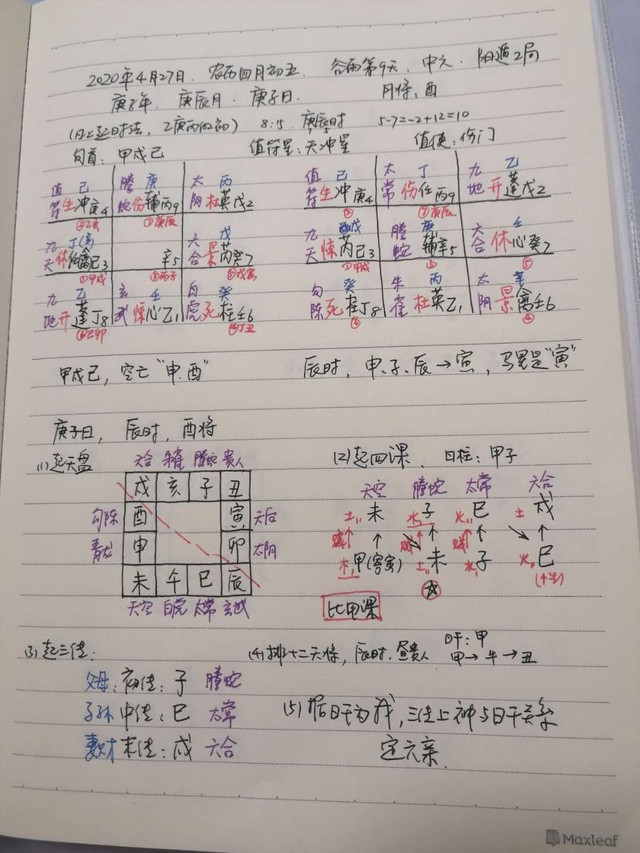 2020年4月27日. 农历四月初五. 谷雨第9天, 中元. 阳遁2局
庚子年. 庚辰月. 庚子日. 月将: 酉
(日上起时法, 乙庚丙作初) 8:15. 庚辰时 5-7=-2+12=10
旬首: 甲戌己 值符星: 天冲星 值使: 伤门
值 己 螣 庚 太 丙 值 己 太 丁 九 乙
符生冲庚4 蛇伤辅丙9 阴杜英戊2 符生冲庚4 常伤任丙9 地开蓬戊2
九 太 戊 九 戊 螣 庚 六 壬
天休任己3 辛5 合景芮癸7 天惊芮己3 蛇辅辛5 合休心癸7
九 乙 玄 壬 白 癸 勾 癸 朱 丙 太 辛
地开蓬丁8 武惊心乙1 虎死柱壬6 陈死柱丁8 雀杜英乙1 阴景禽壬6
甲戌己, 空亡"申.酉" 辰时, 申、子、辰→寅, 马星是"寅"
庚子日, 辰时, 酉将
(1)起天盘 (2)起四课. 日柱: 甲子
六合 朱雀 螣蛇 贵人 天空 螣蛇 太常 六合
戌 亥 子 丑 土 未 水 子 火 巳 土 戌
勾陈 酉 寅 天后
青龙 申 卯 太阴 木 甲(寄寅) 土 未 水 子 火 巳
未 午 巳 辰
天空 白虎 太常 玄武 比用课
(3)起三传: (4)排十二天将, 辰时. 昼贵人 日干: 甲
甲→牛→丑
父母: 初传: 子 螣蛇
子孙 中传: 巳 太常 (5)据日干为我, 三传上神与日干关系
妻财 末传: 戌 六合 定六亲.
Maxleaf